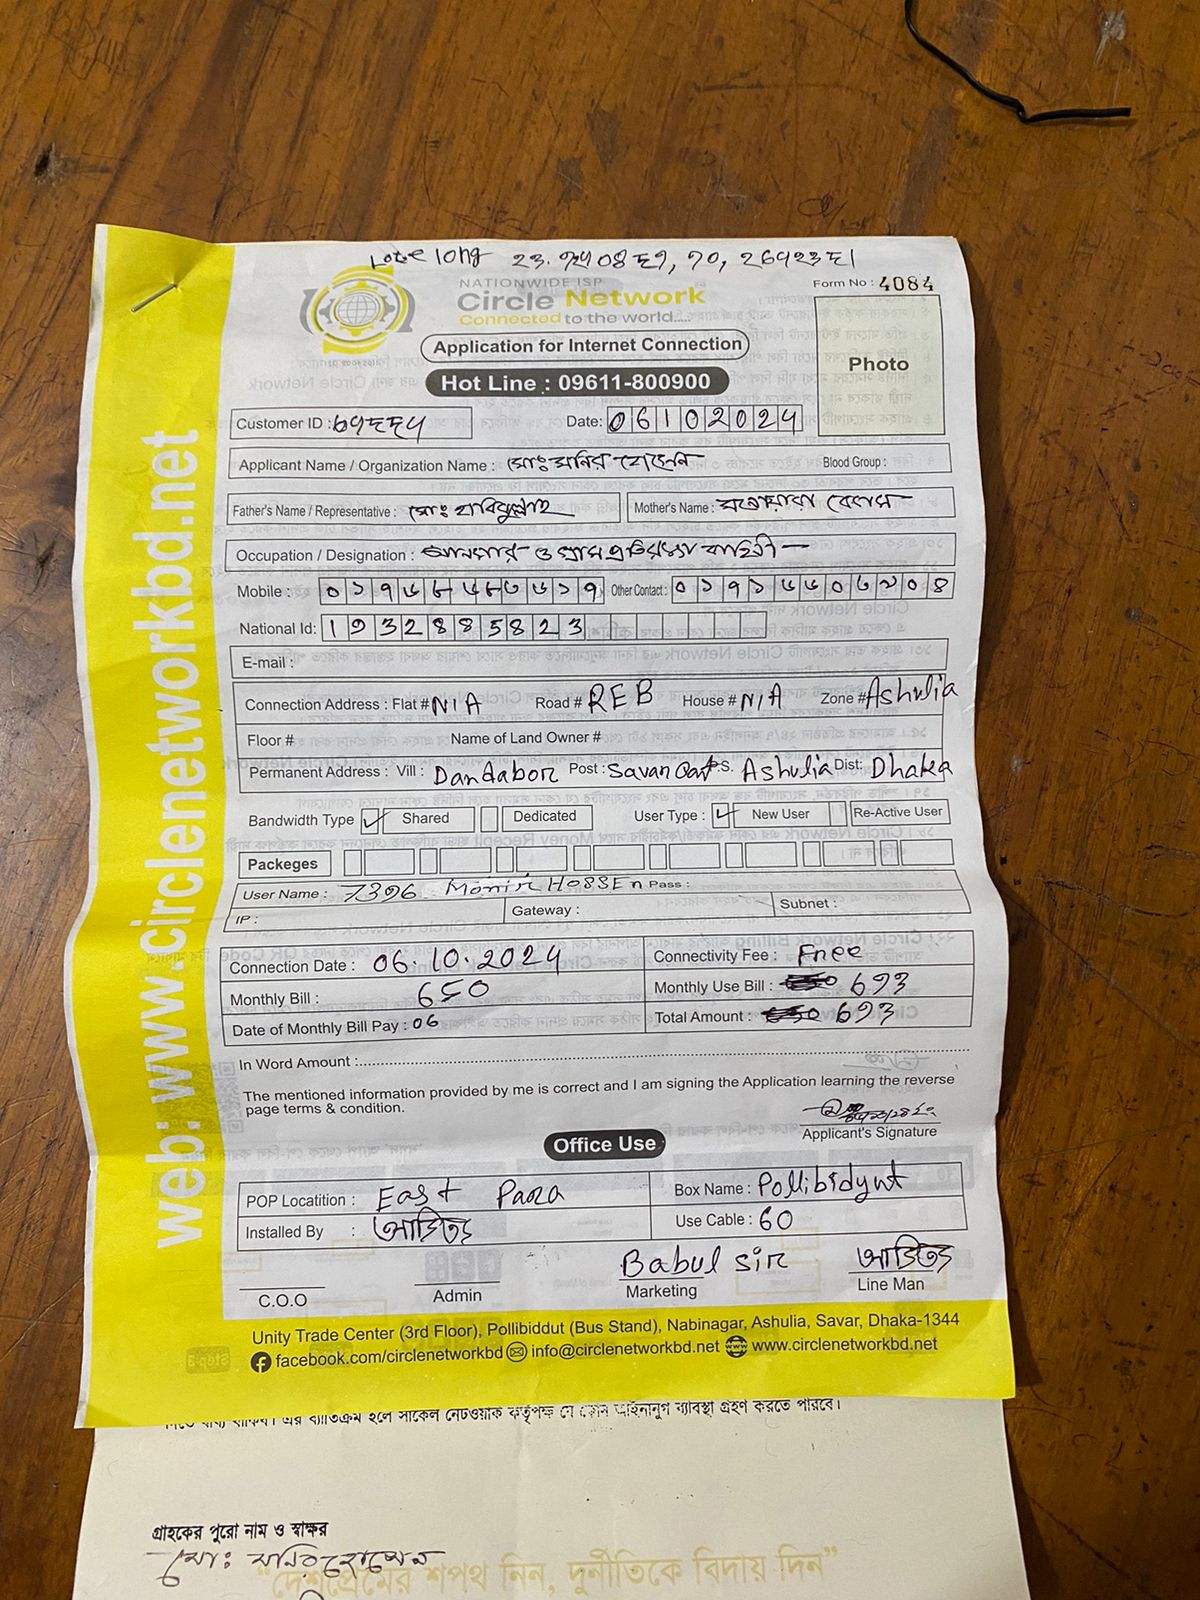 Late long 23.
NATIONWIDE ISP
Form No : 4084
Circle Network
Connected to the world.....
Application for Internet Connection
Photo
Hot Line : 09611-800900
Customer ID :
Date: 06102024
Applicant Name / Organization Name : মোঃ মনির হোসেন
Blood Group :
Father's Name / Representative : মোঃ হাবিবুল্লাহ
Mother's Name : মনোয়ারা বেগম
Occupation / Designation : আনসার ও গ্রাম প্রতিরক্ষা বাহিনী
Mobile :
Other Contact :
National Id: 1932885823
E-mail :
Connection Address : Flat # N/A Road # REB House # N/A Zone # Ashulia
Floor # Name of Land Owner #
Permanent Address : Vill : Dandabor Post : Savar Cant P.S. Ashulia Dist: Dhaka
Bandwidth Type ✓ Shared Dedicated User Type : ✓ New User Re-Active User
Packeges
User Name : 7396 Monir HOSSEn Pass :
IP : Gateway : Subnet :
Connection Date : 06.10.2024 Connectivity Fee : Free
Monthly Bill : 650 Monthly Use Bill : 693
Date of Monthly Bill Pay : 06 Total Amount : 693
In Word Amount :
The mentioned information provided by me is correct and I am signing the Application learning the reverse
page terms & condition.
Applicant's Signature
Office Use
POP Locatition : East Para Box Name : Pollibidyut
Installed By : Use Cable : 60
Babul sir
C.O.O Admin Marketing Line Man
Unity Trade Center (3rd Floor), Pollibiddut (Bus Stand), Nabinagar, Ashulia, Savar, Dhaka-1344
facebook.com/circlenetworkbd info@circlenetworkbd.net www.circlenetworkbd.net
web: www.circlenetworkbd.net
দিতে বাধ্য থাকিব। এর ব্যতিক্রম হলে সার্কেল নেটওয়ার্ক কর্তৃপক্ষ যে কোন আইনানুগ ব্যাবস্থা গ্রহণ করতে পারবে।
গ্রাহকের পুরো নাম ও স্বাক্ষর
মোঃ মনির হোসেন
“দেশপ্রেমের শপথ নিন, দুর্নীতিকে বিদায় দিন”